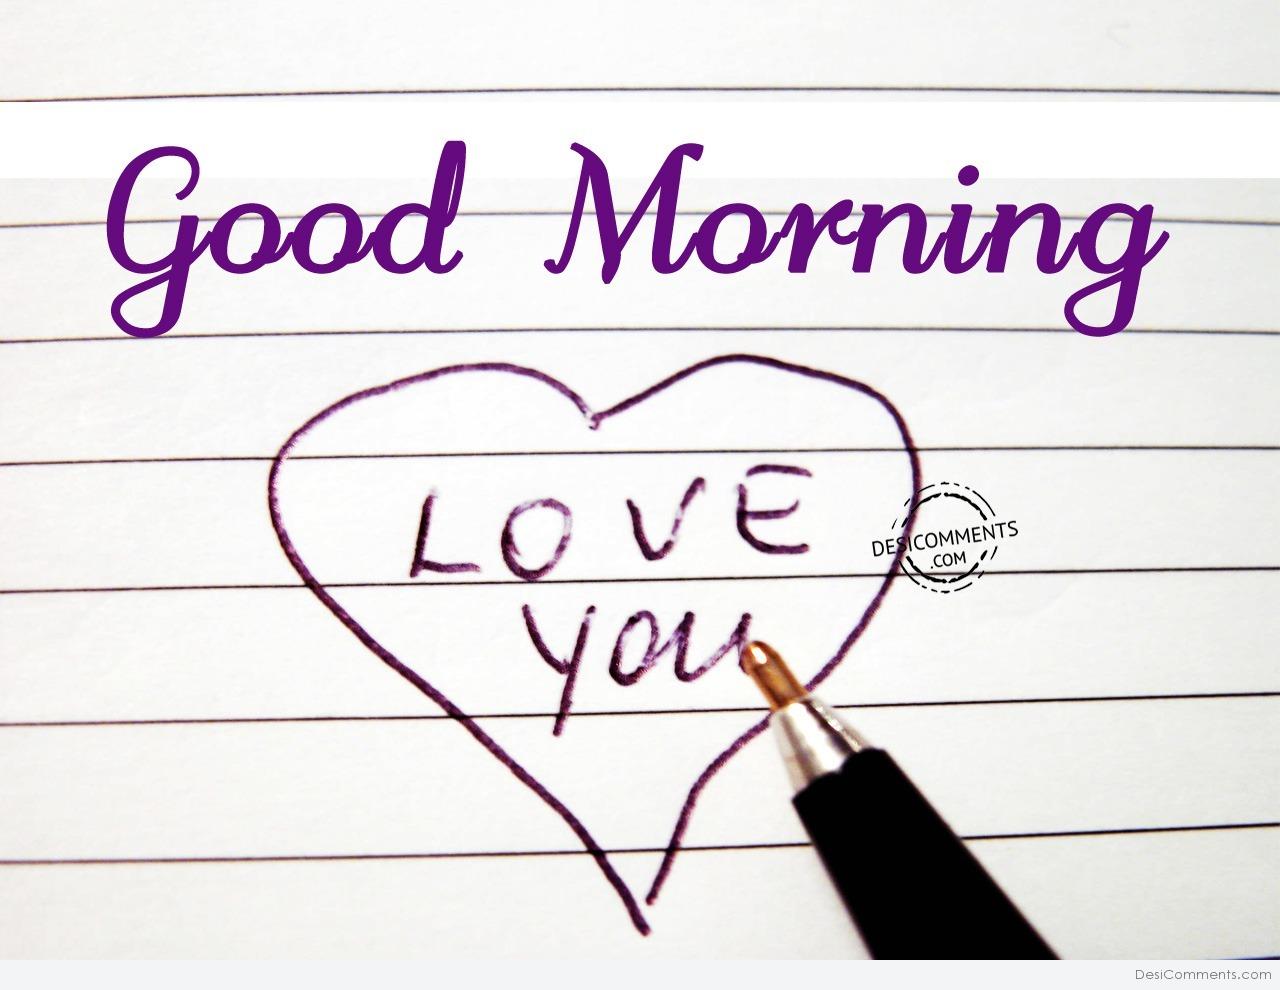 Good Morning
LOVE
you
DESICOMMENTS
.COM
DesiComments.com